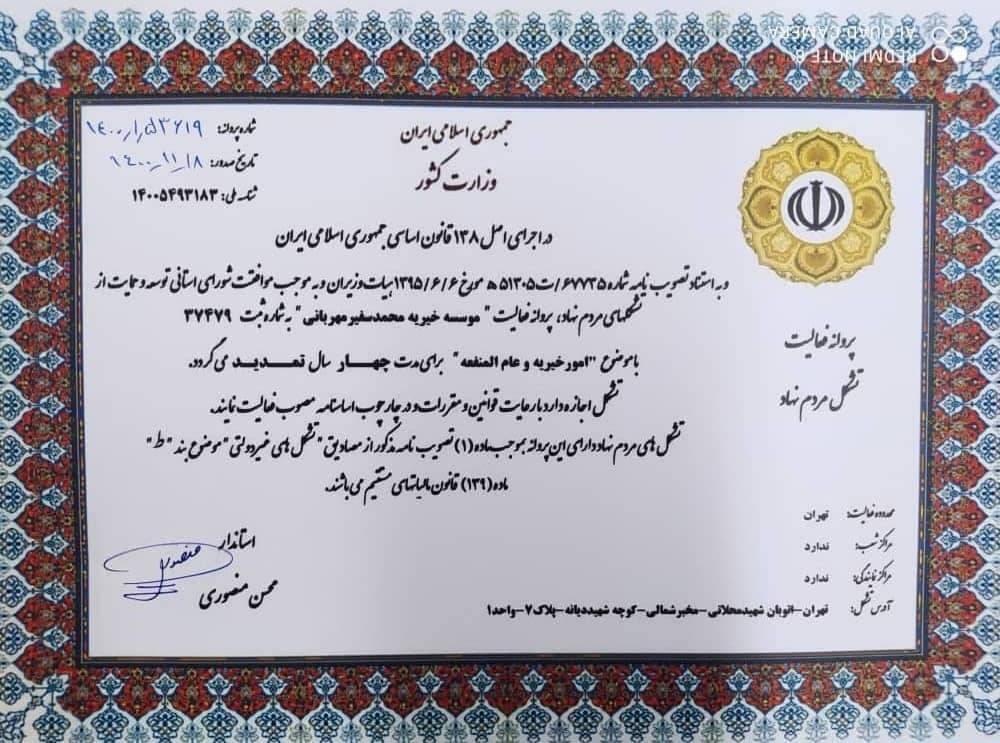 AI QUAD CAMERA
REDMI NOTE 8
جمهوری اسلامی ایران
وزارت کشور
شماره پروانه: ۱۴۰۰/۱/۵۳۶۱۹
تاریخ صدور: ۱۴۰۰/۱۱/۱۸
شناسه ملی: ۱۴۰۰۵۴۹۳۱۸۳
در اجرای اصل ۱۳۸ قانون اساسی جمهوری اسلامی ایران
و به استناد تصویب نامه شماره ۶۷۷۳۵/ت۵۱۳۰۵ ه مورخ ۱۳۹۵/۶/۶ هیات وزیران و به موجب موافقت شورای استانی توسعه و حمایت از
تشکلهای مردم نهاد، پروانه فعالیت "موسسه خیریه محمدسفیرمهربانی" به شماره ثبت ۳۷۴۷۹
با موضوع "امورخیریه و عام المنفعه" برای مدت چهار سال تمدید می گردد.
تشکل اجازه دارد با رعایت قوانین و مقررات و در چارچوب اساسنامه مصوب فعالیت نمایند.
تشکل های مردم نهاد دارای این پروانه بموجب ماده (۱) تصویب نامه مذکور از مصادیق "تشکل های غیردولتی" موضوع بند "ط"
ماده (۱۳۹) قانون مالیاتهای مستقیم می باشند.
پروانه فعالیت
تشکل مردم نهاد
محدوده فعالیت: تهران
مراکز شعب: ندارد
مراکز نمایندگی: ندارد
آدرس تشکل: تهران-اتوبان شهیدمحلاتی-مخبرشمالی-کوچه شهیددیانه-پلاک۷-واحد۱
استاندار
محسن منصوری